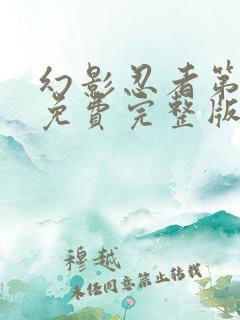 幻影忍者第
免費完整版
穆越
未经同意禁止转载